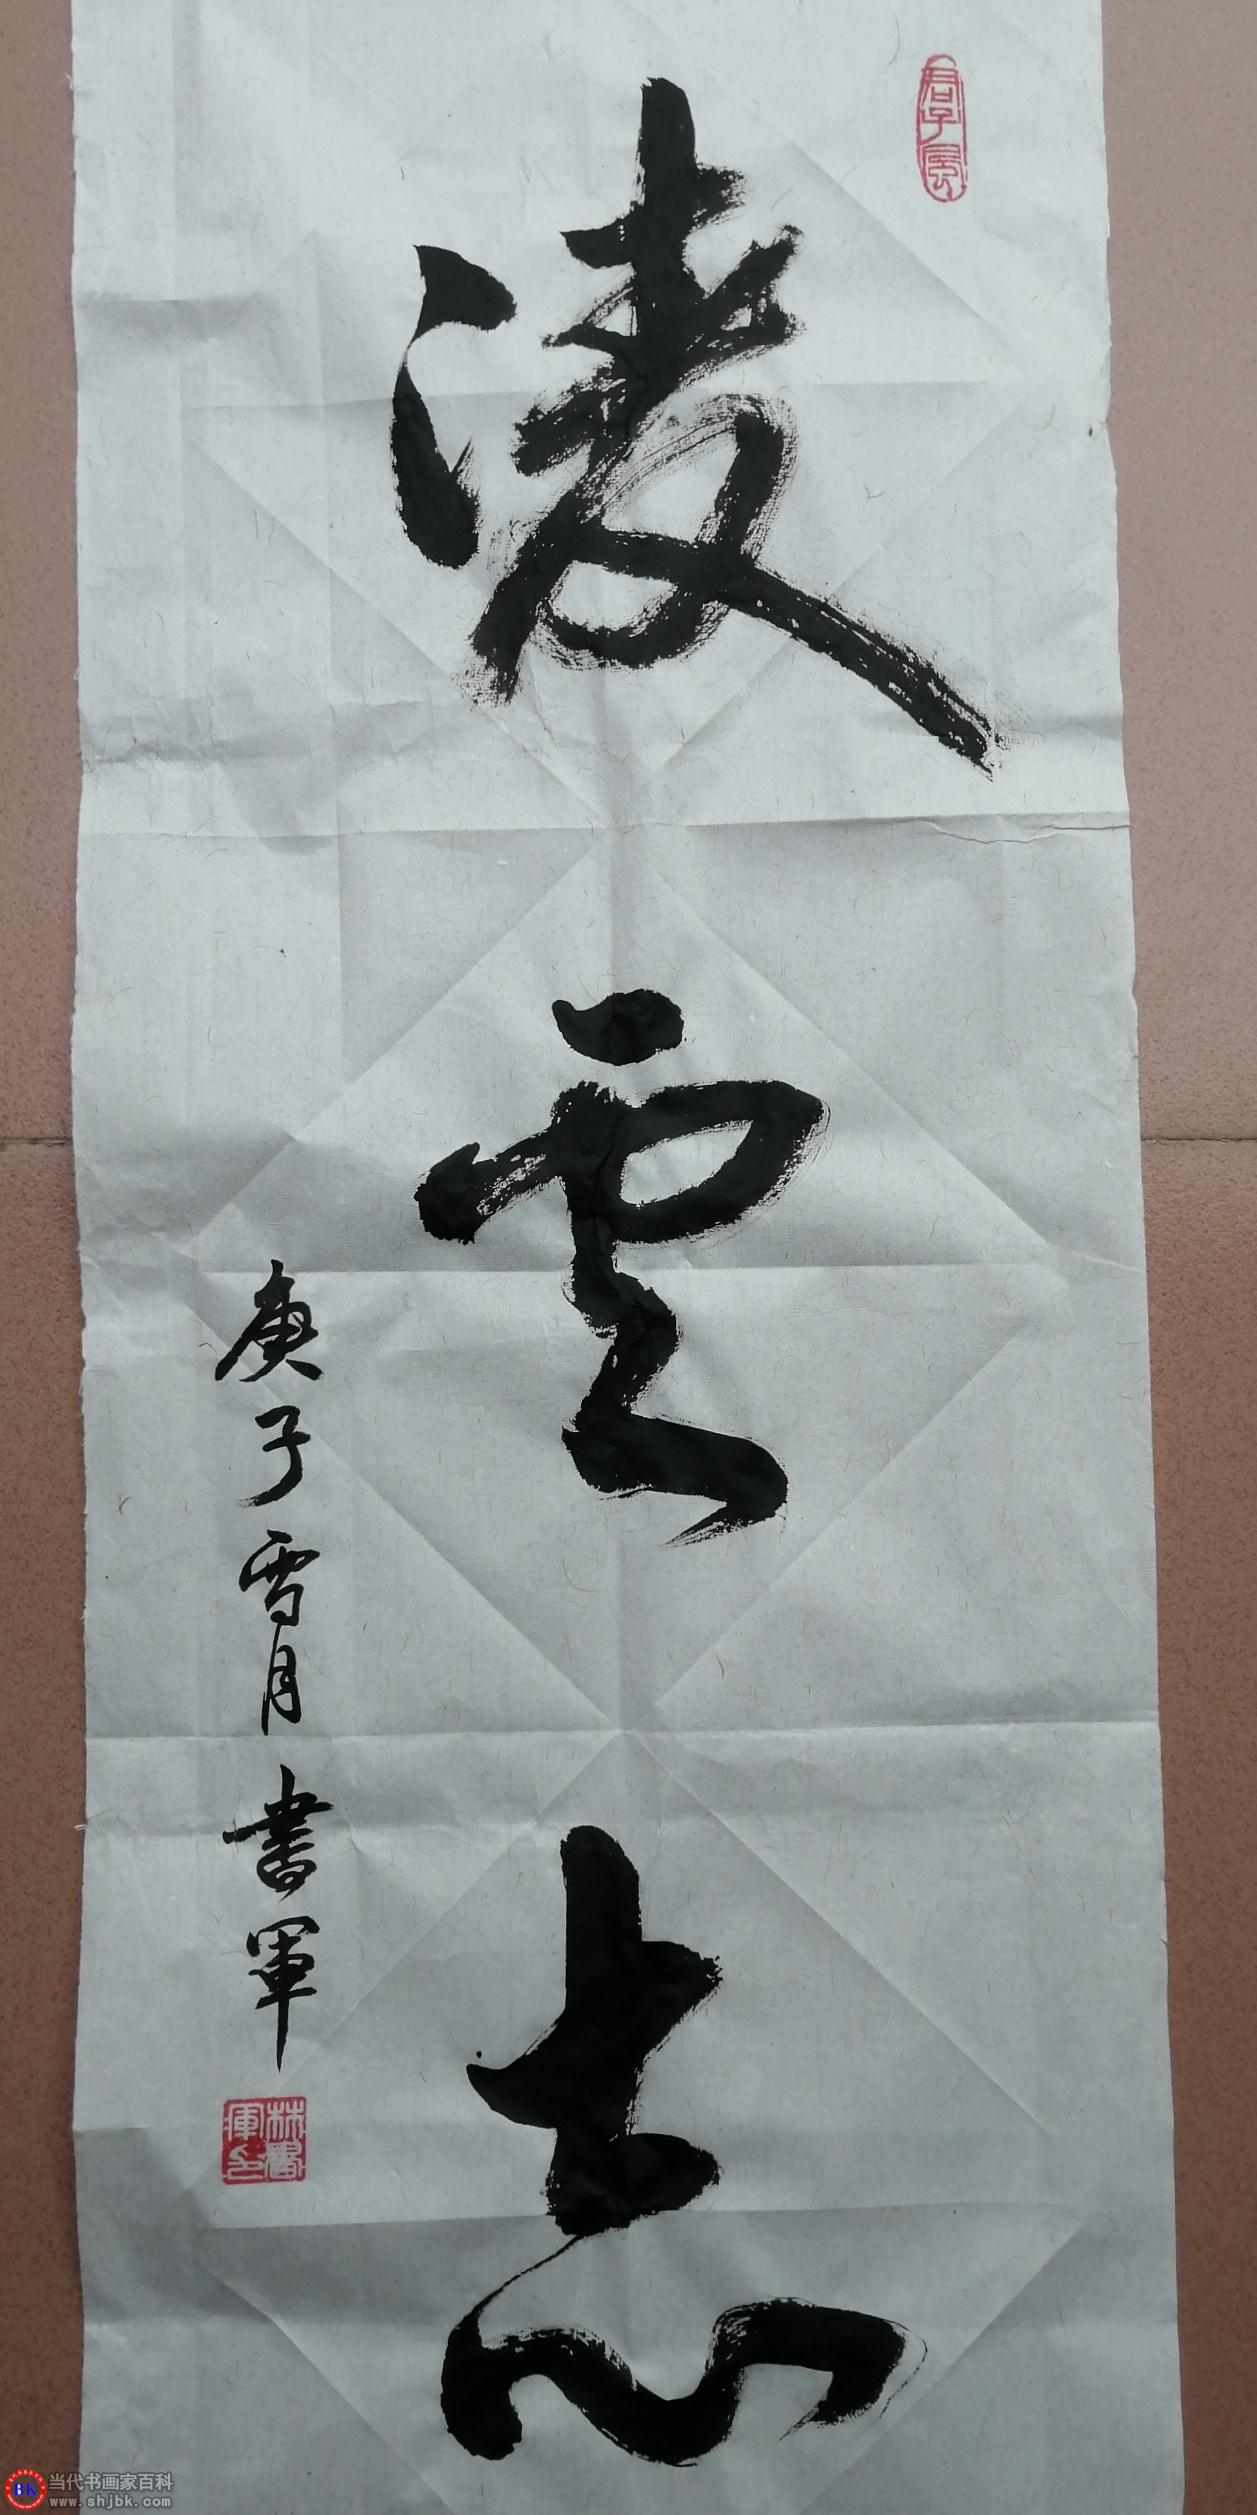 君子風
凌雲志
庚子雪月 書軍
林書軍印
当代书画家百科
www.shjbk.com
BK